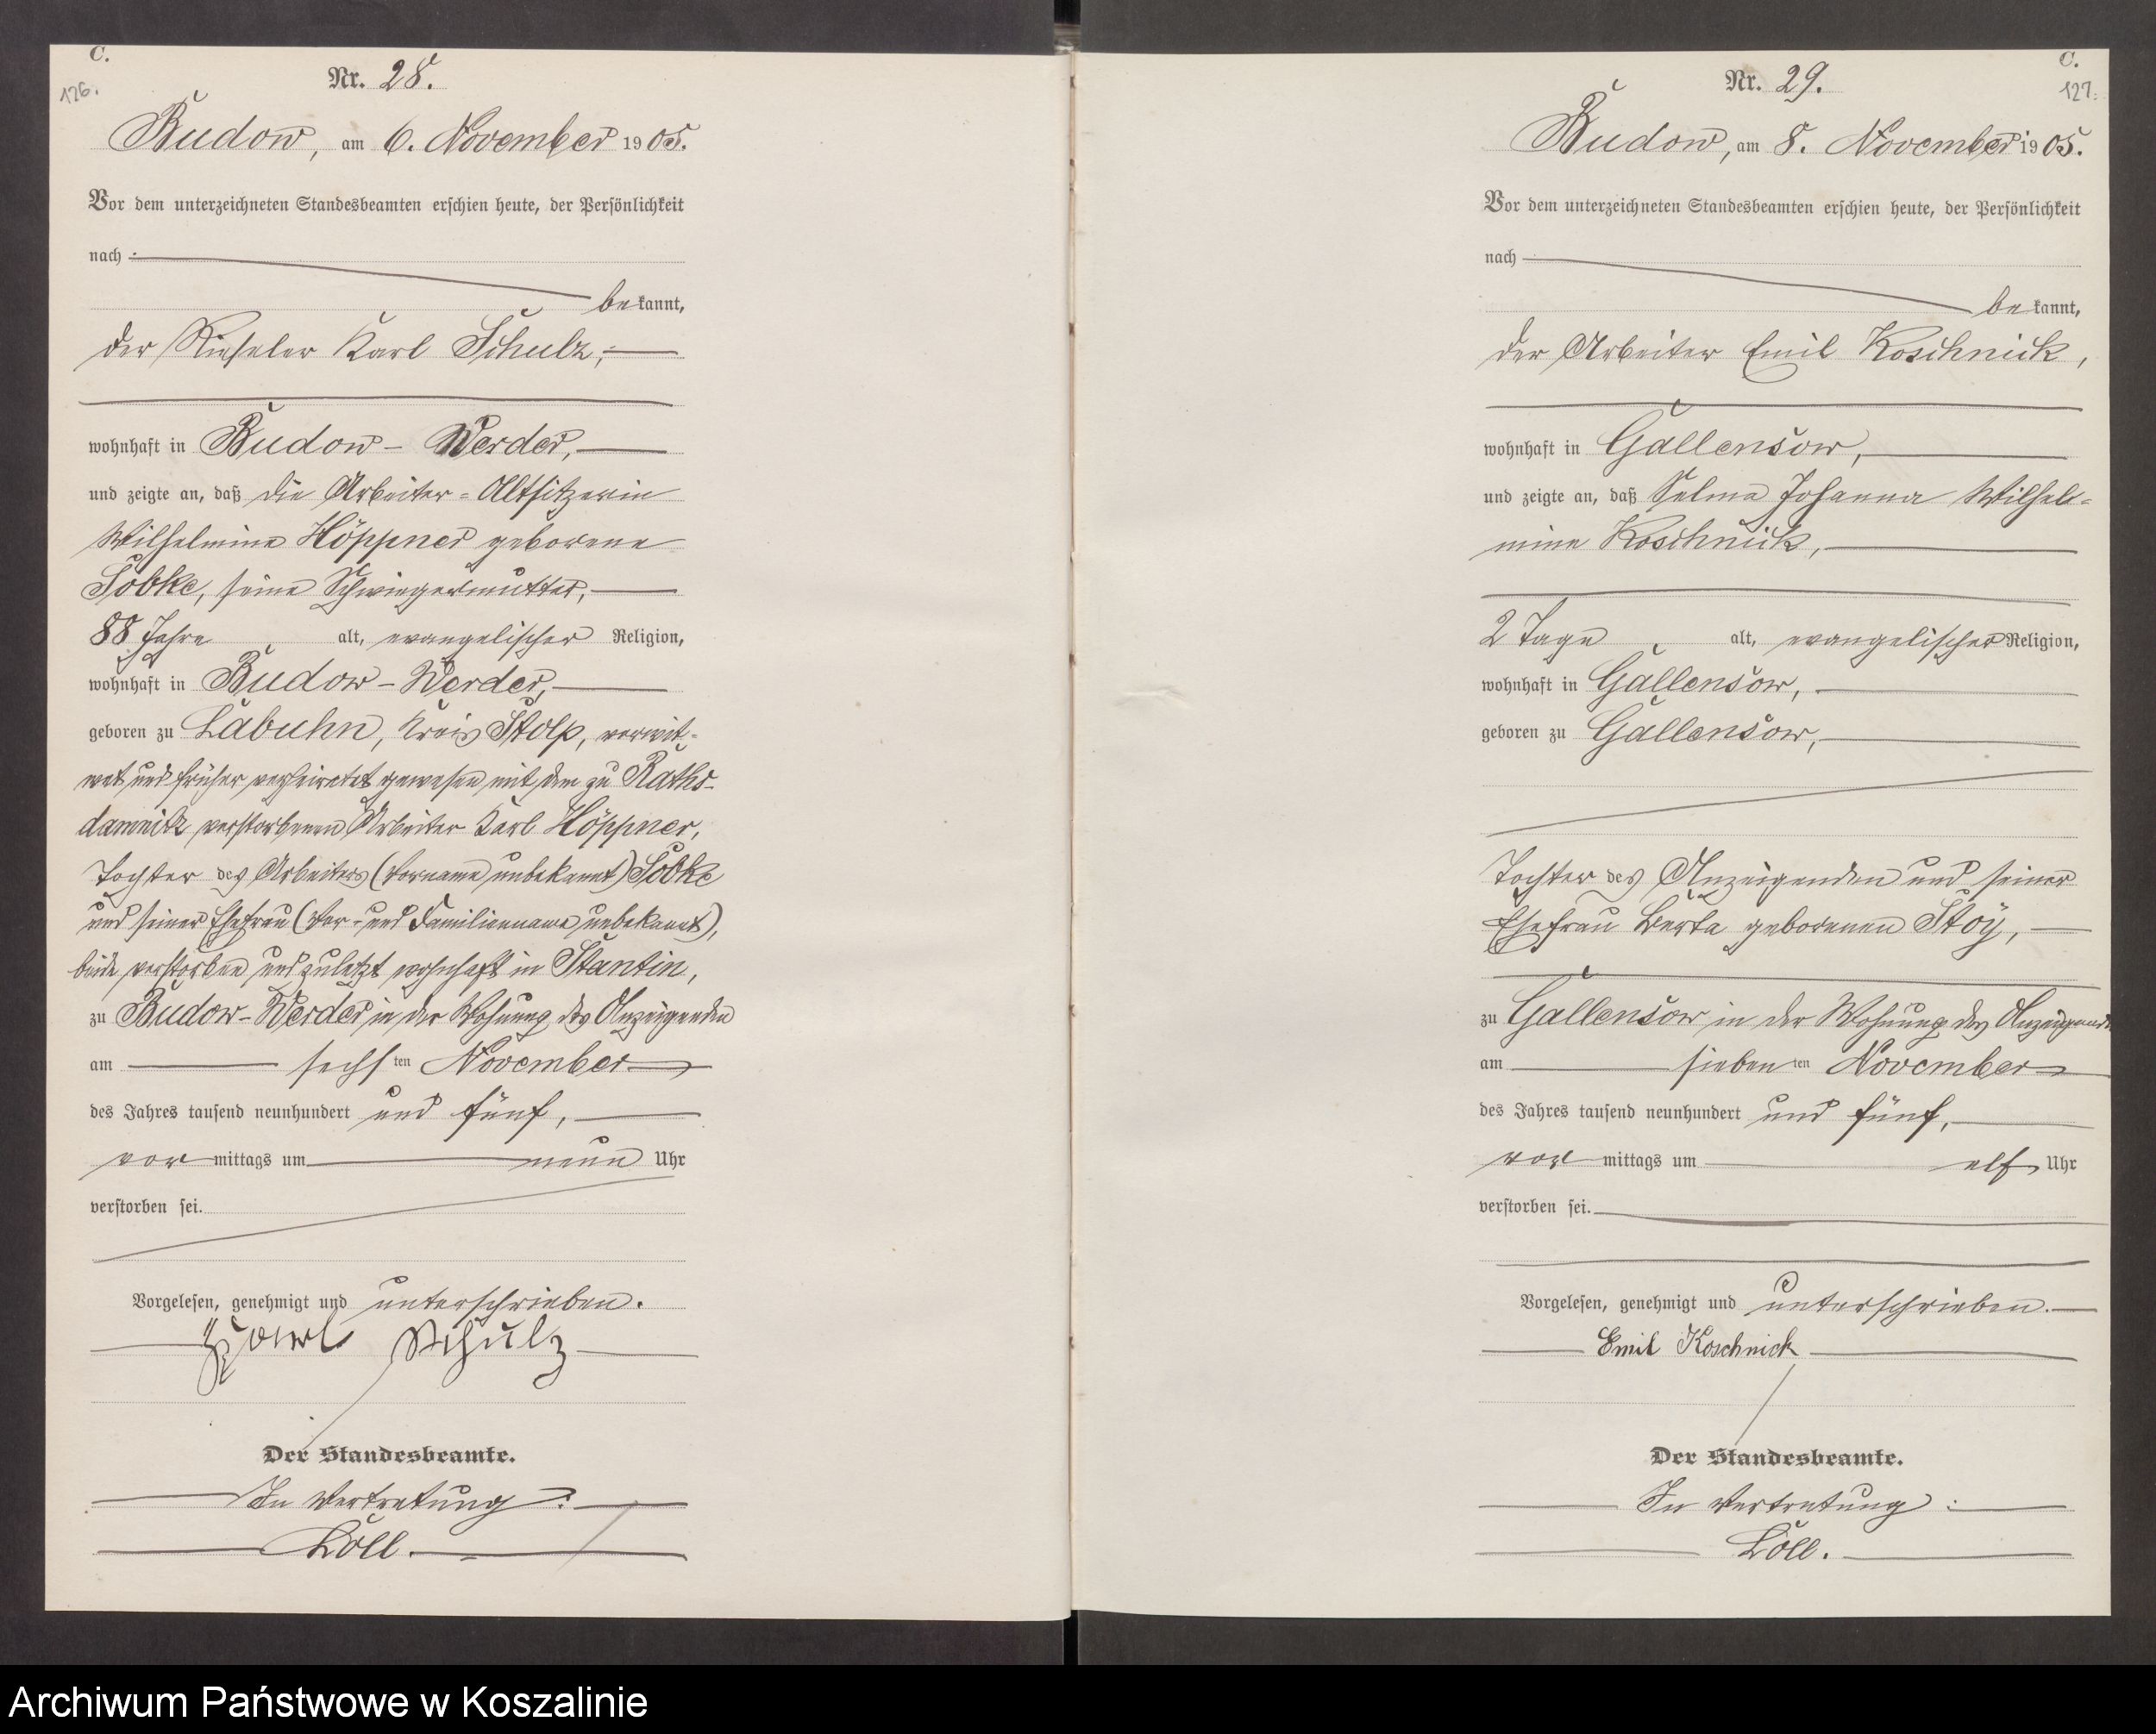 C.
126.
Nr. 28.
Budow, am 6. November 1905.
Vor dem unterzeichneten Standesbeamten erschien heute, der Persönlichkeit
nach
bekannt,
der Rieseler Karl Schulz,
wohnhaft in Budow-Werder,
und zeigte an, daß die Arbeiter-Altsitzerin
Wilhelmine Höppner geborene
Sobke, seine Schwiegermutter,
88 Jahre alt, evangelischer Religion,
wohnhaft in Budow-Werder,
geboren zu Labuhn, Kreis Stolp, verwit-
wet und früher verheiratet gewesen mit dem zu Raths-
damnitz verstorbenen Arbeiter Karl Höppner,
Tochter des Arbeiters (Vorname unbekannt) Sobke
und seiner Ehefrau (Vor- und Familienname unbekannt),
beide verstorben und zuletzt wohnhaft in Stantin,
zu Budow-Werder in der Wohnung des Anzeigenden
am sechsten November
des Jahres tausend neunhundert und fünf,
vormittags um neun Uhr
verstorben sei.
Vorgelesen, genehmigt und unterschrieben.
Karl Schulz
Der Standesbeamte.
In Vertretung:
Löll.
C.
127.
Nr. 29.
Budow, am 8. November 1905.
Vor dem unterzeichneten Standesbeamten erschien heute, der Persönlichkeit
nach
bekannt,
der Arbeiter Emil Koschnick,
wohnhaft in Gallensow,
und zeigte an, daß Selma Johanna Wilhel-
mine Koschnick,
2 Tage alt, evangelischer Religion,
wohnhaft in Gallensow,
geboren zu Gallensow,
Tochter des Anzeigenden und seiner
Ehefrau Berta geborenen Stoÿ,
zu Gallensow in der Wohnung des Anzeigenden
am siebenten November
des Jahres tausend neunhundert und fünf,
vormittags um elf Uhr
verstorben sei.
Vorgelesen, genehmigt und unterschrieben.
Emil Koschnick
Der Standesbeamte.
In Vertretung:
Löll.
Archiwum Państwowe w Koszalinie